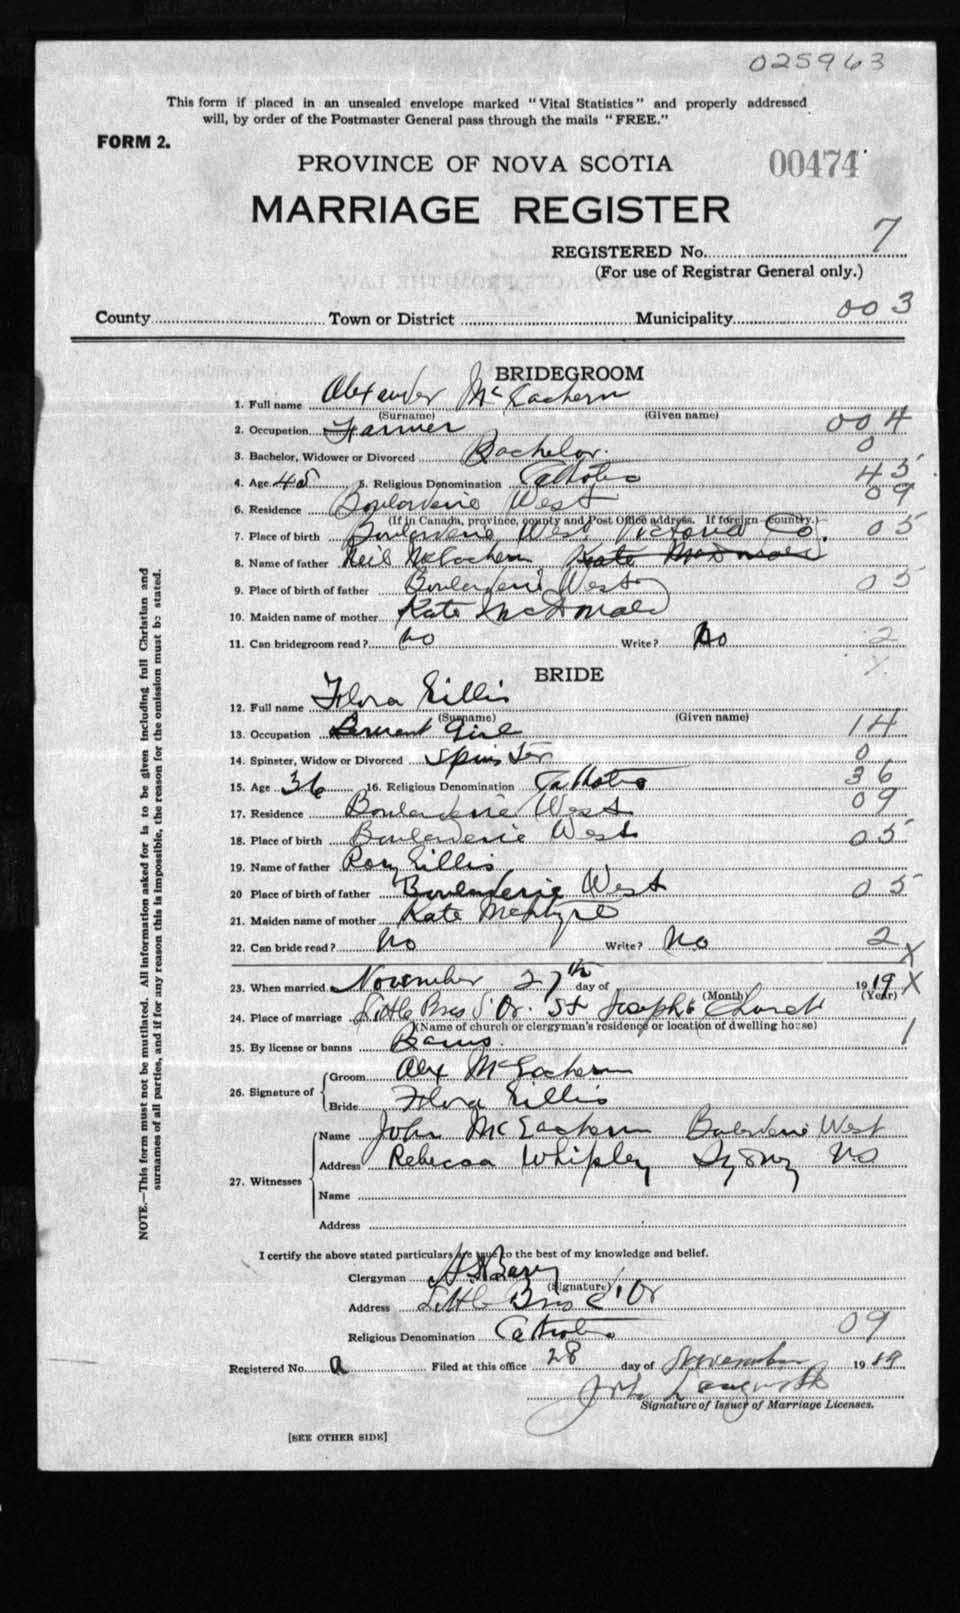 025963
This form if placed in an unsealed envelope marked "Vital Statistics" and properly addressed
will, by order of the Postmaster General pass through the mails "FREE."
FORM 2.
PROVINCE OF NOVA SCOTIA
00474
MARRIAGE REGISTER
REGISTERED No. 7
(For use of Registrar General only.)
County Town or District Municipality 003
BRIDEGROOM
1. Full name Alexander McEachern
(Surname) (Given name)
2. Occupation Farmer 004
3. Bachelor, Widower or Divorced Bachelor. 0
4. Age 45 5. Religious Denomination Catholic 45
6. Residence Boularderie West 09
(If in Canada, province, county and Post Office address. If foreign country.)
7. Place of birth Boularderie West Victoria Co. 05
8. Name of father Neil McEachern Kate McDonald
9. Place of birth of father Boularderie West 05
10. Maiden name of mother Kate McDonald
11. Can bridegroom read? no Write? No 2
BRIDE
12. Full name Flora Gillis
(Surname) (Given name)
13. Occupation Servant Girl 14
14. Spinster, Widow or Divorced Spinster 0
15. Age 36 16. Religious Denomination Catholic 36
17. Residence Boularderie West 09
18. Place of birth Boularderie West 05
19. Name of father Rory Gillis
20 Place of birth of father Boularderie West 05
21. Maiden name of mother Kate McIntyre
22. Can bride read? No Write? No 2 X
23. When married November 27th day of 1919 X
(Month) (Year)
24. Place of marriage Little Bras d'Or. St Joseph's Church
(Name of church or clergyman's residence or location of dwelling house)
25. By license or banns Banns. 1
26. Signature of Groom Alex McEachern
Bride Flora Gillis
27. Witnesses Name John McEachern Boularderie West
Address Rebecca Whipley Sydney NS
Name
Address
I certify the above stated particulars are true to the best of my knowledge and belief.
Clergyman
(Signature)
Address Little Bras d'Or
Religious Denomination Catholic 09
Registered No. a Filed at this office 28 day of November 1919
John
Signature of Issuer of Marriage Licenses.
[SEE OTHER SIDE]
NOTE.—This form must not be mutilated. All information asked for is to be given including full Christian and
surnames of all parties, and if for any reason this is impossible, the reason for the omission must be stated.